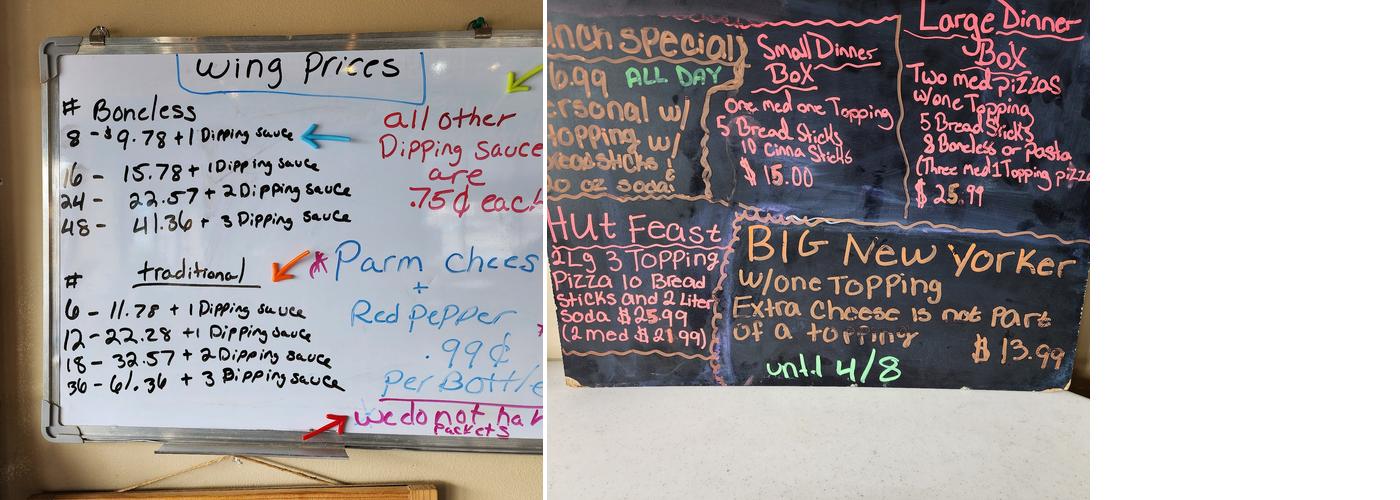 Wing Prices
# Boneless
8 - $9.78 + 1 Dipping sauce
16 - 15.78 + 1 Dipping sauce
24 - 22.57 + 2 Dipping sauce
48 - 41.36 + 3 Dipping Sauce
# traditional
6 - 11.78 + 1 Dipping sauce
12 - 22.28 + 1 Dipping sauce
18 - 32.57 + 2 Dipping sauce
36 - 61.36 + 3 Dipping sauce
all other
Dipping sauce
are
.75¢ each
*Parm chees
+
Red pepper
.99¢
Per Bottle
we do not hav
Packets
unch special
6.99 ALL DAY
ersonal w/
topping w/
Breadsticks!
20 oz soda!
Small Dinner
Box
one med one Topping
5 Bread Sticks
10 Cinna Sticks
$15.00
Large Dinner
Box
Two med pizzas
w/one Topping
5 Bread Sticks
8 Boneless or pasta
(Three med 1 Topping pizza
$25.99
Hut Feast
2 Lg 3 Topping
Pizza 10 Bread
sticks and 2 Liter
soda $25.99
(2 med $21.99)
BIG New Yorker
w/one Topping
Extra Cheese is not part
of a topping
$13.99
until 4/8